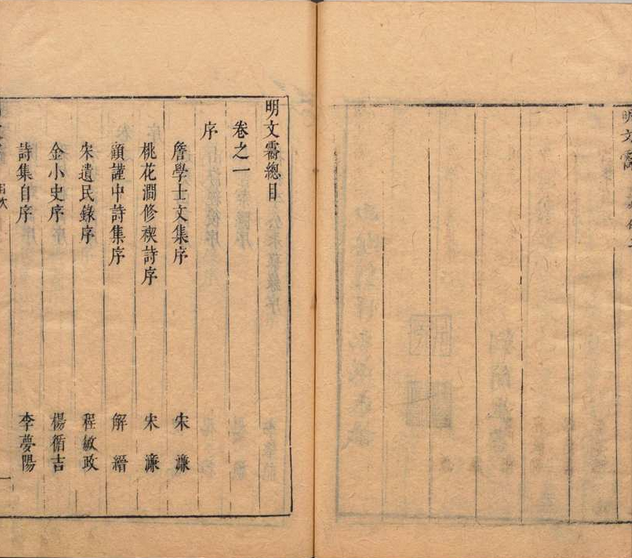 明文
明文霱總目
卷之一
序
詹學士文集序 宋濂
桃花澗修禊詩序 宋濂
顧謹中詩集序 解縉
宋遺民錄序 程敏政
金小史序 楊循吉
詩集自序 李夢陽
一